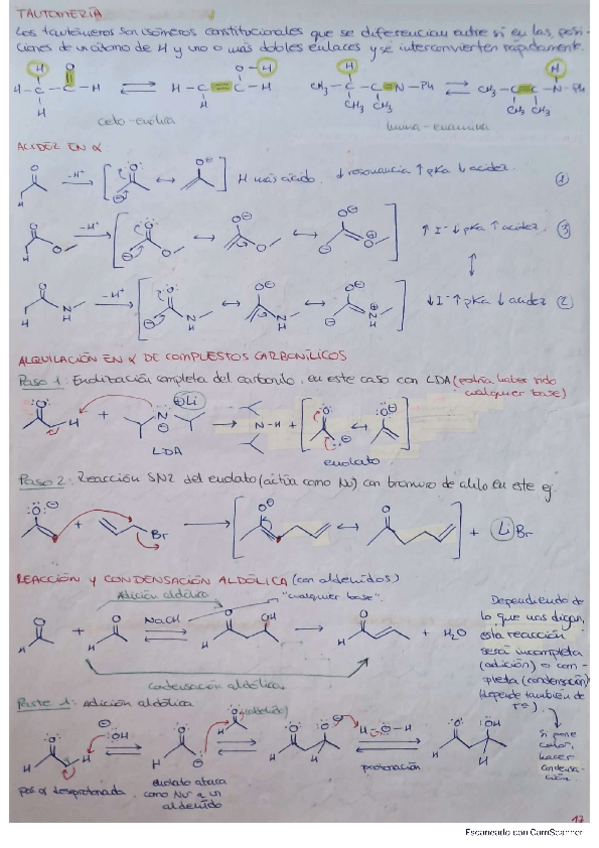 TAUTOMERÍA
Los tautómeros son isómeros constitucionales que se diferencian entre sí en las posi-
ciones de un átomo de H y uno o más dobles enlaces y se interconvierten rápidamente.
ceto-enólica
imina-enamina
ACIDEZ EN α
-H⁺ H más ácido. ↓ resonancia ↑ pKa ↓ acidez. ①
-H⁺ ↑ I⁻ ↓ pKa ↑ acidez. ③
-H⁺ ↓ I⁻ ↑ pKa ↓ acidez ②
ALQUILACIÓN EN α DE COMPUESTOS CARBONÍLICOS
Paso 1: Enolización completa del carbonilo, en este caso con LDA (podría haber sido
cualquier base)
LDA
enolato
Paso 2: Reacción SN2 del enolato (actúa como Nu) con bromuro de alilo en este ej.
+ Br → + LiBr
REACCIÓN Y CONDENSACIÓN ALDÓLICA (con aldehídos)
Adición aldólica
"cualquier base".
NaOH
+ H₂O
condensación aldólica
Dependiendo de
lo que nos digan,
esta reacción
será incompleta
(adición) o com-
pleta (condensación)
(depende también de
Tª).
Si pone
calor,
hacer
condensa-
ción.
Parte 1: Adición aldólica
(aldehído)
pos α desprotonada
enolato ataca
como Nu a un
aldehído
protonación
17
Escaneado con CamScanner